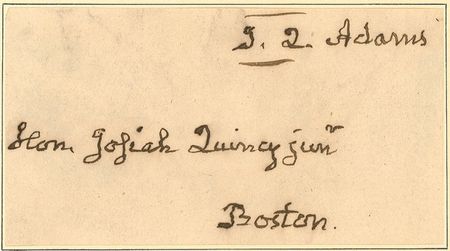 J. Q. Adams
Hon. Josiah Quincy junr
Boston.